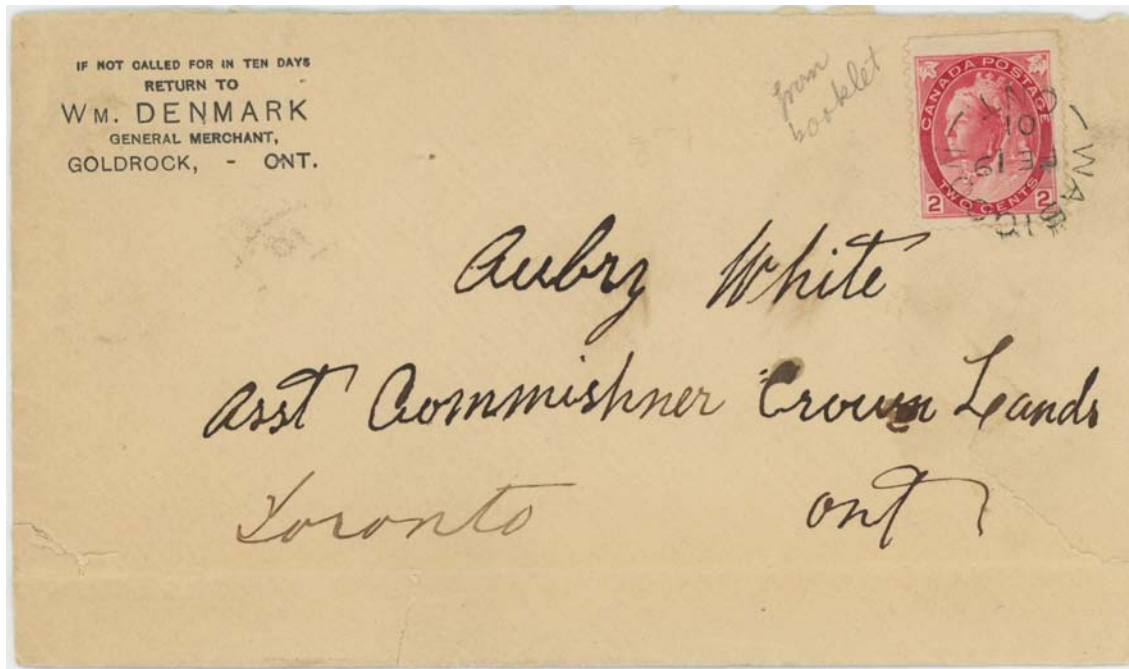 IF NOT CALLED FOR IN TEN DAYS
RETURN TO
WM. DENMARK
GENERAL MERCHANT,
GOLDROCK, - ONT.
from
booklet
CANADA POSTAGE
2 TWO CENTS 2
ONT
01
FE 19
Aubry White
Asst Commishner Crown Lands
Toronto ont